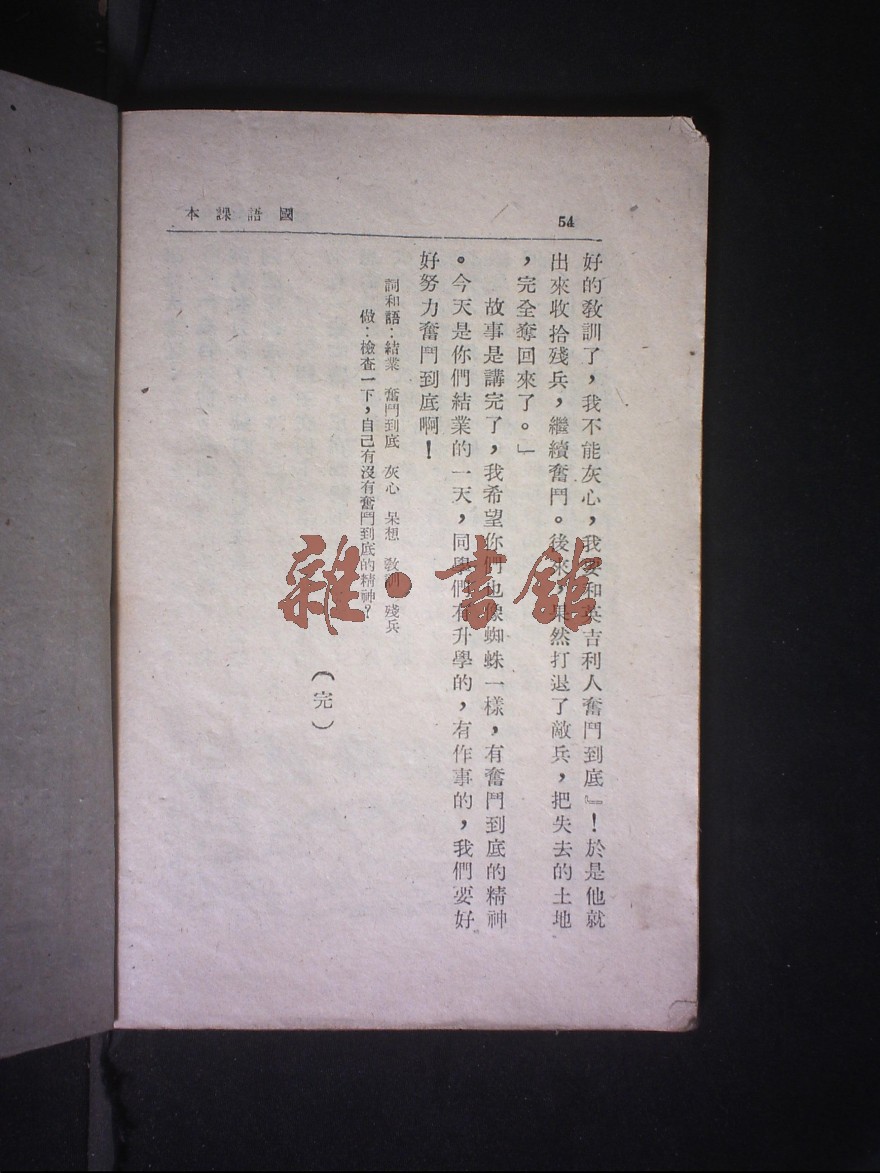 54
國語課本
好的教訓了，我不能灰心，我要和英吉利人奮鬥到底』！於是他就
出來收拾殘兵，繼續奮鬥。後來，果然打退了敵兵，把失去的土地
，完全奪回來了。」
故事是講完了，我希望你們也像蜘蛛一樣，有奮鬥到底的精神
。今天是你們結業的一天，同學們有升學的，有作事的，我們要好
好努力奮鬥到底啊！
詞和語：結業　奮鬥到底　灰心　呆想　教訓　殘兵
做：檢查一下，自己有沒有奮鬥到底的精神？
（完）
雜·書館